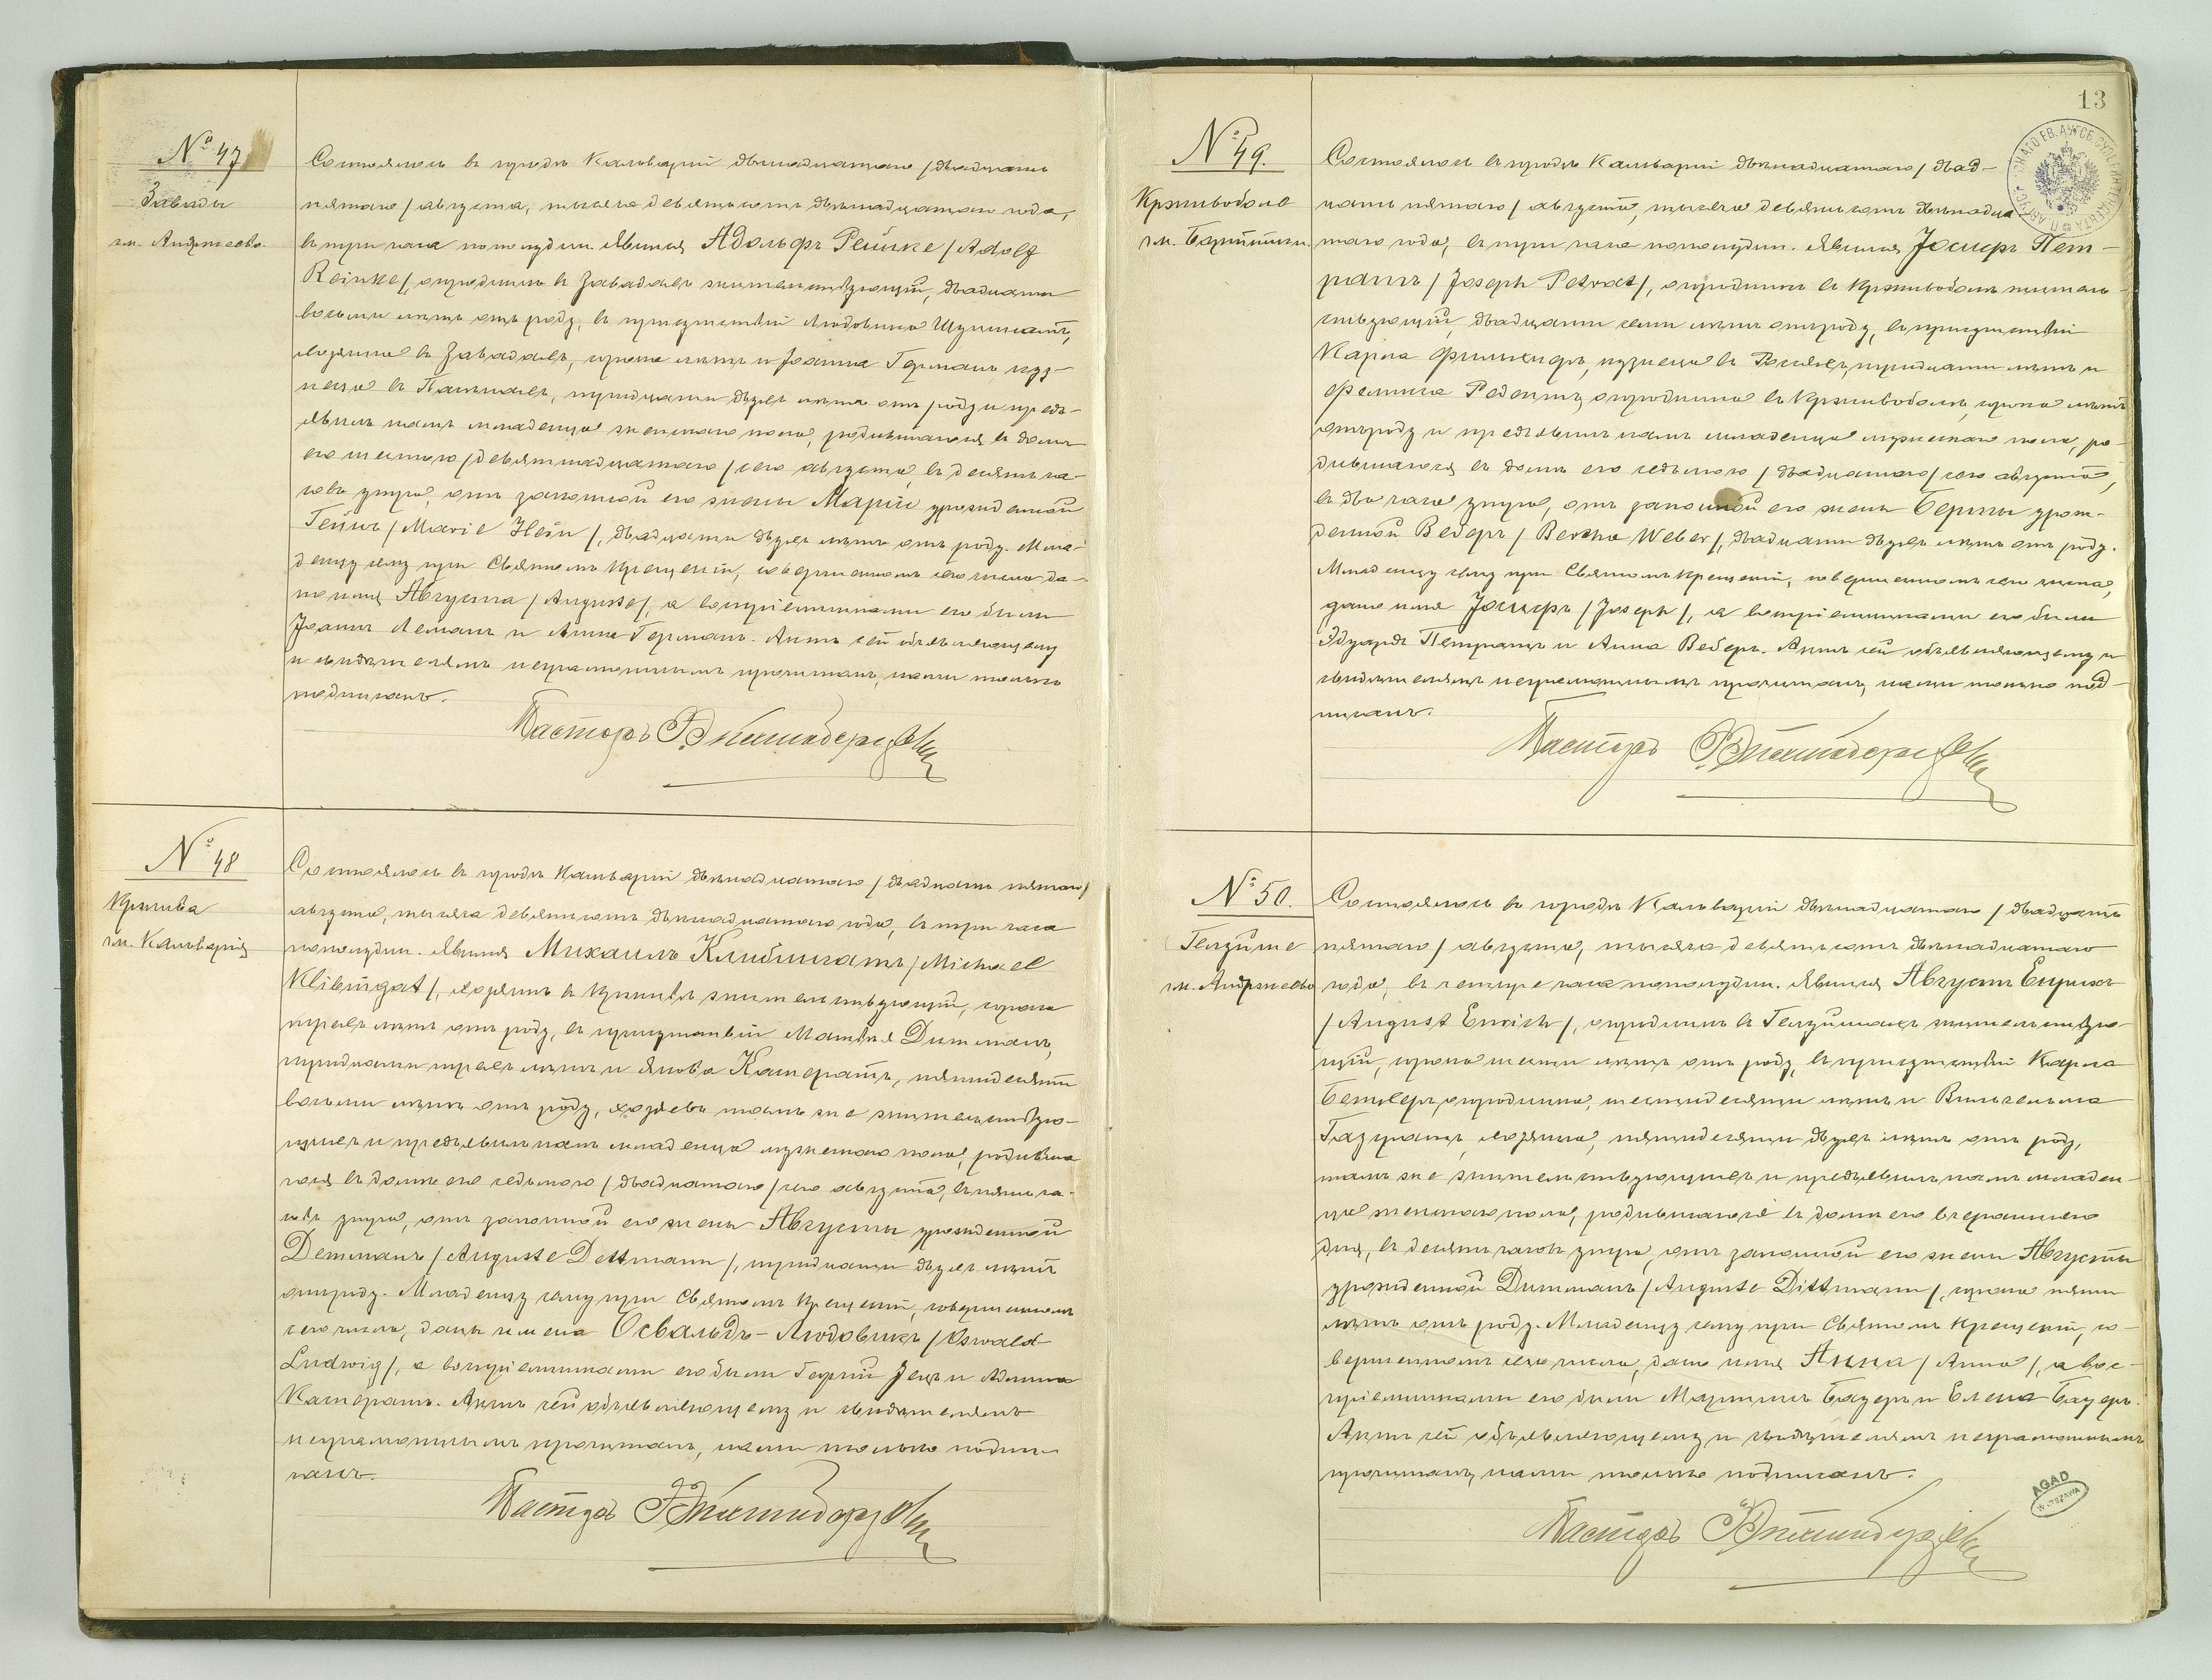 № 47
Завады
гм. Андржеево.
Состоялось въ городѣ Кальваріи двѣнадцатаго /двадцать
пятаго/ августа, тысяча девятьсотъ двѣнадцатаго года,
въ три часа пополудни. Явился Адольфъ Рейнке /Adolf
Reinke/, огродникъ въ Завадахъ жительствующій, двадцати
восьми лѣтъ отъ роду, въ присутствіи Людовика
хозяина въ Завадахъ, сорока лѣтъ и Іоанна Германъ, куз-
неца въ тридцати двухъ лѣтъ отъ роду и предъ-
явилъ намъ младенца женскаго пола, родившагося въ домѣ
его шестого /девятнадцатаго/ сего августа, въ десять ча-
совъ утра, отъ законной его жены Маріи урожденной
Гейнъ /Marie Hein/, двадцати двухъ лѣтъ отъ роду. Мла-
денцу сему при Святомъ Крещеніи, совершенномъ сего числа да-
но имя Августа /Auguste/, а воспріемниками его были
Іоаннъ Леманъ и Анна Германъ. Актъ сей объявляющему
и свидѣтелямъ неграмотнымъ прочитанъ, нами только
подписанъ.
Пасторъ
№ 48
Кржива
гм. Кальварія
Состоялось въ городѣ Кальваріи двѣнадцатаго /двадцать пятаго/
августа, тысяча девятьсотъ двѣнадцатаго года, въ три часа
пополудни. Явился Михаилъ Клибингатъ /Michael
Klibingat/, хозяинъ въ Крживѣ жительствующій, сорока
трехъ лѣтъ отъ роду, въ присутствіи Матвѣя Дитманъ,
тридцати трехъ лѣтъ и Якова Катератъ, пятидесяти
восьми лѣтъ отъ роду, хозяевъ тамъ же жительствую-
щихъ и предъявилъ намъ младенца мужескаго пола, родивша-
гося въ домѣ его седьмого /двадцатаго/ сего августа, въ пять ча-
совъ утра, отъ законной его жены Августы урожденной
Детманъ /Auguste Dettmann/, тридцати двухъ лѣтъ
отъ роду. Младенцу сему при Святомъ Крещеніи, совершенномъ
сего числа, даны имена Освальдъ-Людовикъ /Oswald-
Ludwig/, а воспріемниками его были Георгій и
Катератъ. Актъ сей объявляющему и свидѣтелямъ
неграмотнымъ прочитанъ, нами только подпи-
санъ.
Пасторъ
13
№ 49.
Крживоболе
гм.
Состоялось въ городѣ Кальваріи двѣнадцатаго /двад-
цать пятаго/ августа, тысяча девятьсотъ двѣнадца-
таго года, въ три часа пополудни. Явился Іосифъ Пет-
ратъ /Joseph Petrat/, огродникъ въ Крживоболахъ житель-
ствующій, двадцати семи лѣтъ отъ роду, въ присутствіи
Карла кузнеца въ тридцати лѣтъ и
огродника въ Крживоболахъ, сорока лѣтъ
отъ роду и предъявилъ намъ младенца мужескаго пола, ро-
дившагося въ домѣ его седьмого /двадцатаго/ сего августа,
въ два часа утра, отъ законной его жены Берты урож-
денной Веберъ /Bertha Weber/, двадцати двухъ лѣтъ отъ роду.
Младенцу сему при Святомъ Крещеніи, совершенномъ сего числа,
дано имя Іосифъ /Joseph/, а воспріемниками его были
Эдуардъ Петратъ и Анна Веберъ. Актъ сей объявляющему и
свидѣтелямъ неграмотнымъ прочитанъ, нами только под-
писанъ.
Пасторъ
№ 50.
гм. Андржеево
Состоялось въ городѣ Кальваріи двѣнадцатаго /двадцать
пятаго/ августа, тысяча девятьсотъ двѣнадцатаго
года, въ четыре часа пополудни. Явился Августъ Енрихъ
/August Enrich/, огродникъ въ жительствую-
щій, сорока шести лѣтъ отъ роду, въ присутствіи Карла
огродника, шестидесяти лѣтъ и Вильгельма
хозяина, пятидесяти двухъ лѣтъ отъ роду,
тамъ же жительствующихъ и предъявилъ намъ младен-
ца женскаго пола, родившагося въ домѣ его вчерашняго
дня, въ десять часовъ утра, отъ законной его жены Августы
урожденной Дитманъ /Auguste Dittmann/, сорока пяти
лѣтъ отъ роду. Младенцу сему при Святомъ Крещеніи, со-
вершенномъ сего числа, дано имя Анна /Anna/, а вос-
пріемниками его были Мартинъ Бауеръ и Елена Бауеръ.
Актъ сей объявляющему и свидѣтелямъ неграмотнымъ
прочитанъ, нами только подписанъ.
Пасторъ
AGAD
WARSZAWA